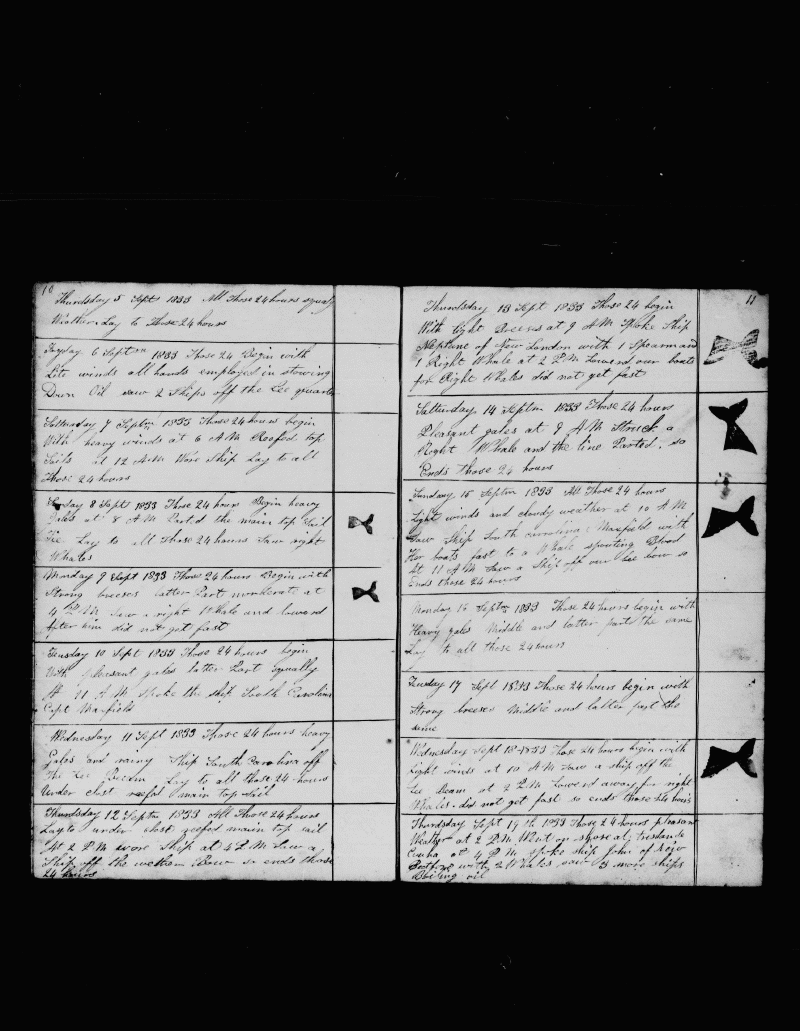 10
Thurdsday 5 Sept 1833 All Those 24 hours squaly
Weather Lay to Those 24 hours
Fryday 6 Septm 1833 Those 24 Begin with
Lite winds all hands employed in stowing
Down Oil saw 2 Ships off the Lee quarter
Satturday 7 Septm 1833 Those 24 hours begin
With heavy winds at 6 A M Reefed top
Sails at 12 A.M. Wore Ship Lay to all
Those 24 hours
Sunday 8 Sept 1833 Those 24 hours Begin heavy
Gales at 8 A M Parted the main top sail
Tie Lay to all Those 24 hours Saw right
Whales
Monday 9 Sept 1833 Those 24 hours Begin with
Strong breeses latter Part moderate at
4 P M Saw a right Whale and lowerd
After him did not get fast
Teusday 10 Sept 1833 Those 24 hours begin
With pleasant gales latter Part squally
At 11 A M Spoke the ship South Carolina
Capt Maxfield
Wednesday 11 Sept 1833 Those 24 hours heavy
Gales and rainy Ship South Carolina off
The Lee Beam Lay to all those 24 hours
Under clost reefed main top sail
Thurdsday 12 Septm 1833 All Those 24 hours
Lay to under clost reefed main top sail
At 2 P M wore Ship at 4 P M Saw a
Ship off the wethern Bow so ends those
24 hours
11
Thurdsday 13 Sept 1833 Those 24 begin
With light Breeses at 9 A M Spoke Ship
Neptune of New London with 1 Spearm and
1 Right Whale at 2 P M Lowerd our boats
for Right Whales did not get fast
Satturday 14 Septm 1833 Those 24 hours
Pleasant gales at 9 A M Struck a
Right Whale and the line Parted so
Ends Those 24 hours
Sunday 15 Septm 1833 All Those 24 hours
Light winds and cloudy weather at 10 A M
Saw Ship South carrolina Maxfield with
Her boats fast to a Whale spouting Blood
At 11 A M Saw a Ship off our Lee bow so
Ends those 24 hours
Monday 16 Septm 1833 Those 24 hours begin with
Heavy gales Middle and latter part the same
Lay to all those 24 hours
Teusday 17 Sept 1833 Those 24 hours begin with
Strong breeses Middle and latter part the
same
Wednesday Sept 18 1833 Those 24 hours begin with
Light winds at 10 A M Saw a ship off the
Lee beam at 2 P M Lowerd away for right
Whales did not get fast so ends those 24 hours
Thurdsday Sept 19th 1833 Those 24 hours pleasant
Weather at 2 P.M. Went on shore at tristande
Cunha at 4 P M spoke ship John of New
Bedford with 2 Whales saw 3 more ships
Boiling oil